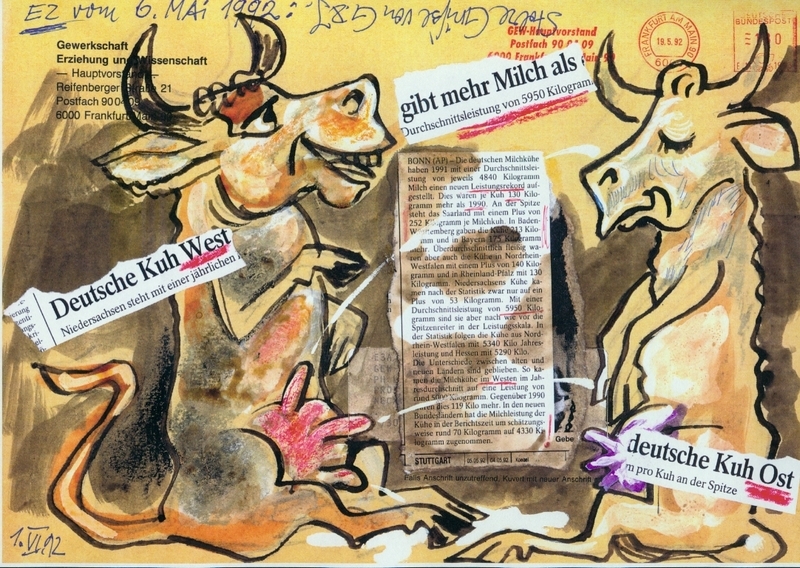 EZ vom 6. MAi 1992:
Gewerkschaft
Erziehung und Wissenschaft
— Hauptvorstand —
Reifenberger Straße 21
Postfach 900409
6000 Frankfurt
GEW-Hauptvorstand
Postfach 90 04 09
6000 Frankfurt
FRANKFURT AM MAIN 90
19.5.92
BUNDESPOST
gibt mehr Milch als
Durchschnittsleistung von 5950 Kilogram
BONN (AP) – Die deutschen Milchkühe
haben 1991 mit einer Durchschnittsleis-
tung von jeweils 4840 Kilogramm
Milch einen neuen Leistungsrekord auf-
gestellt. Dies waren je Kuh 130 Kilo-
gramm mehr als 1990. An der Spitze
steht das Saarland mit einem Plus von
252 Kilogramm je Milchkuh. In Baden-
Württemberg gaben die Kühe 213 Kilo-
gramm und in Bayern 175 Kilogramm
mehr. Überdurchschnittlich fleißig wa-
ren aber auch die Kühe in Nordrhein-
Westfalen mit einem Plus von 140 Kilo-
gramm und in Rheinland-Pfalz mit 130
Kilogramm. Niedersachsens Kühe ka-
men nach der Statistik zwar nur auf ein
Plus von 53 Kilogramm. Mit einer
Durchschnittsleistung von 5950 Kilo-
gramm sind sie aber nach wie vor die
Spitzenreiter in der Leistungsskala. In
der Statistik folgen die Kühe aus Nord-
rhein-Westfalen mit 5340 Kilo Jahres-
leistung und Hessen mit 5290 Kilo.
Die Unterschiede zwischen alten und
neuen Ländern sind geblieben. So ka-
men die Milchkühe im Westen im Jah-
resdurchschnitt auf eine Leistung von
rund 5000 Kilogramm. Gegenüber 1990
waren dies 119 Kilo mehr. In den neuen
Bundesländern hat die Milchleistung der
Kühe in der Berichtszeit um schätzungs-
weise rund 70 Kilogramm auf 4330 Ki
logramm zugenommen.
Gebe
STUTTGART
Falls Anschrift unzutreffend, Kuvert mit neuer Anschrift
Deutsche Kuh West
Niedersachsen steht mit einer jährlichen
deutsche Kuh Ost
m pro Kuh an der Spitze
1. VI. 92